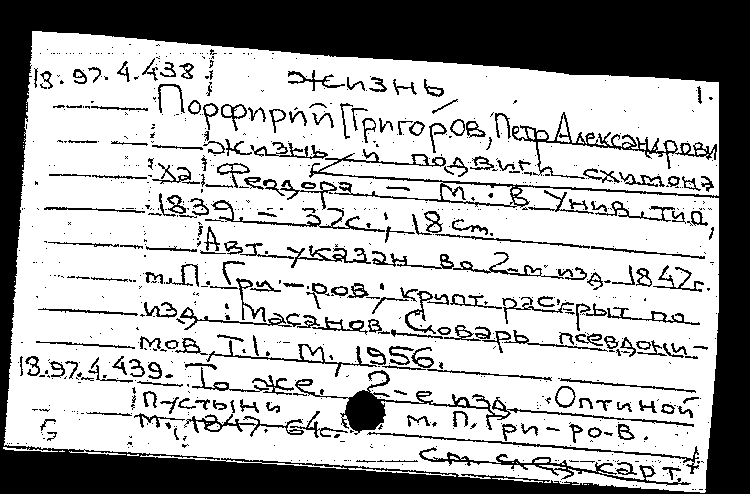 18.97.4.438. жизнь 1.
Порфирий [Григоров, Петр Александрови
жизнь и подвиги схимона
ха Феодора. — М.: в Унив. тип,
1839. — 37с.; 18 см.
Авт. указан во 2-м изд. 1847г.
т. П. Гри-ров; крипт. раскрыт по
изд.: Масанов. Словарь псевдони-
мов, Т.1. М., 1956.
18.97.4.439. То же. 2-е изд. Оптиной
Пустыни
М., 1847. 64с. т. П. Гри-ро-в.
Б
См. след. карт.